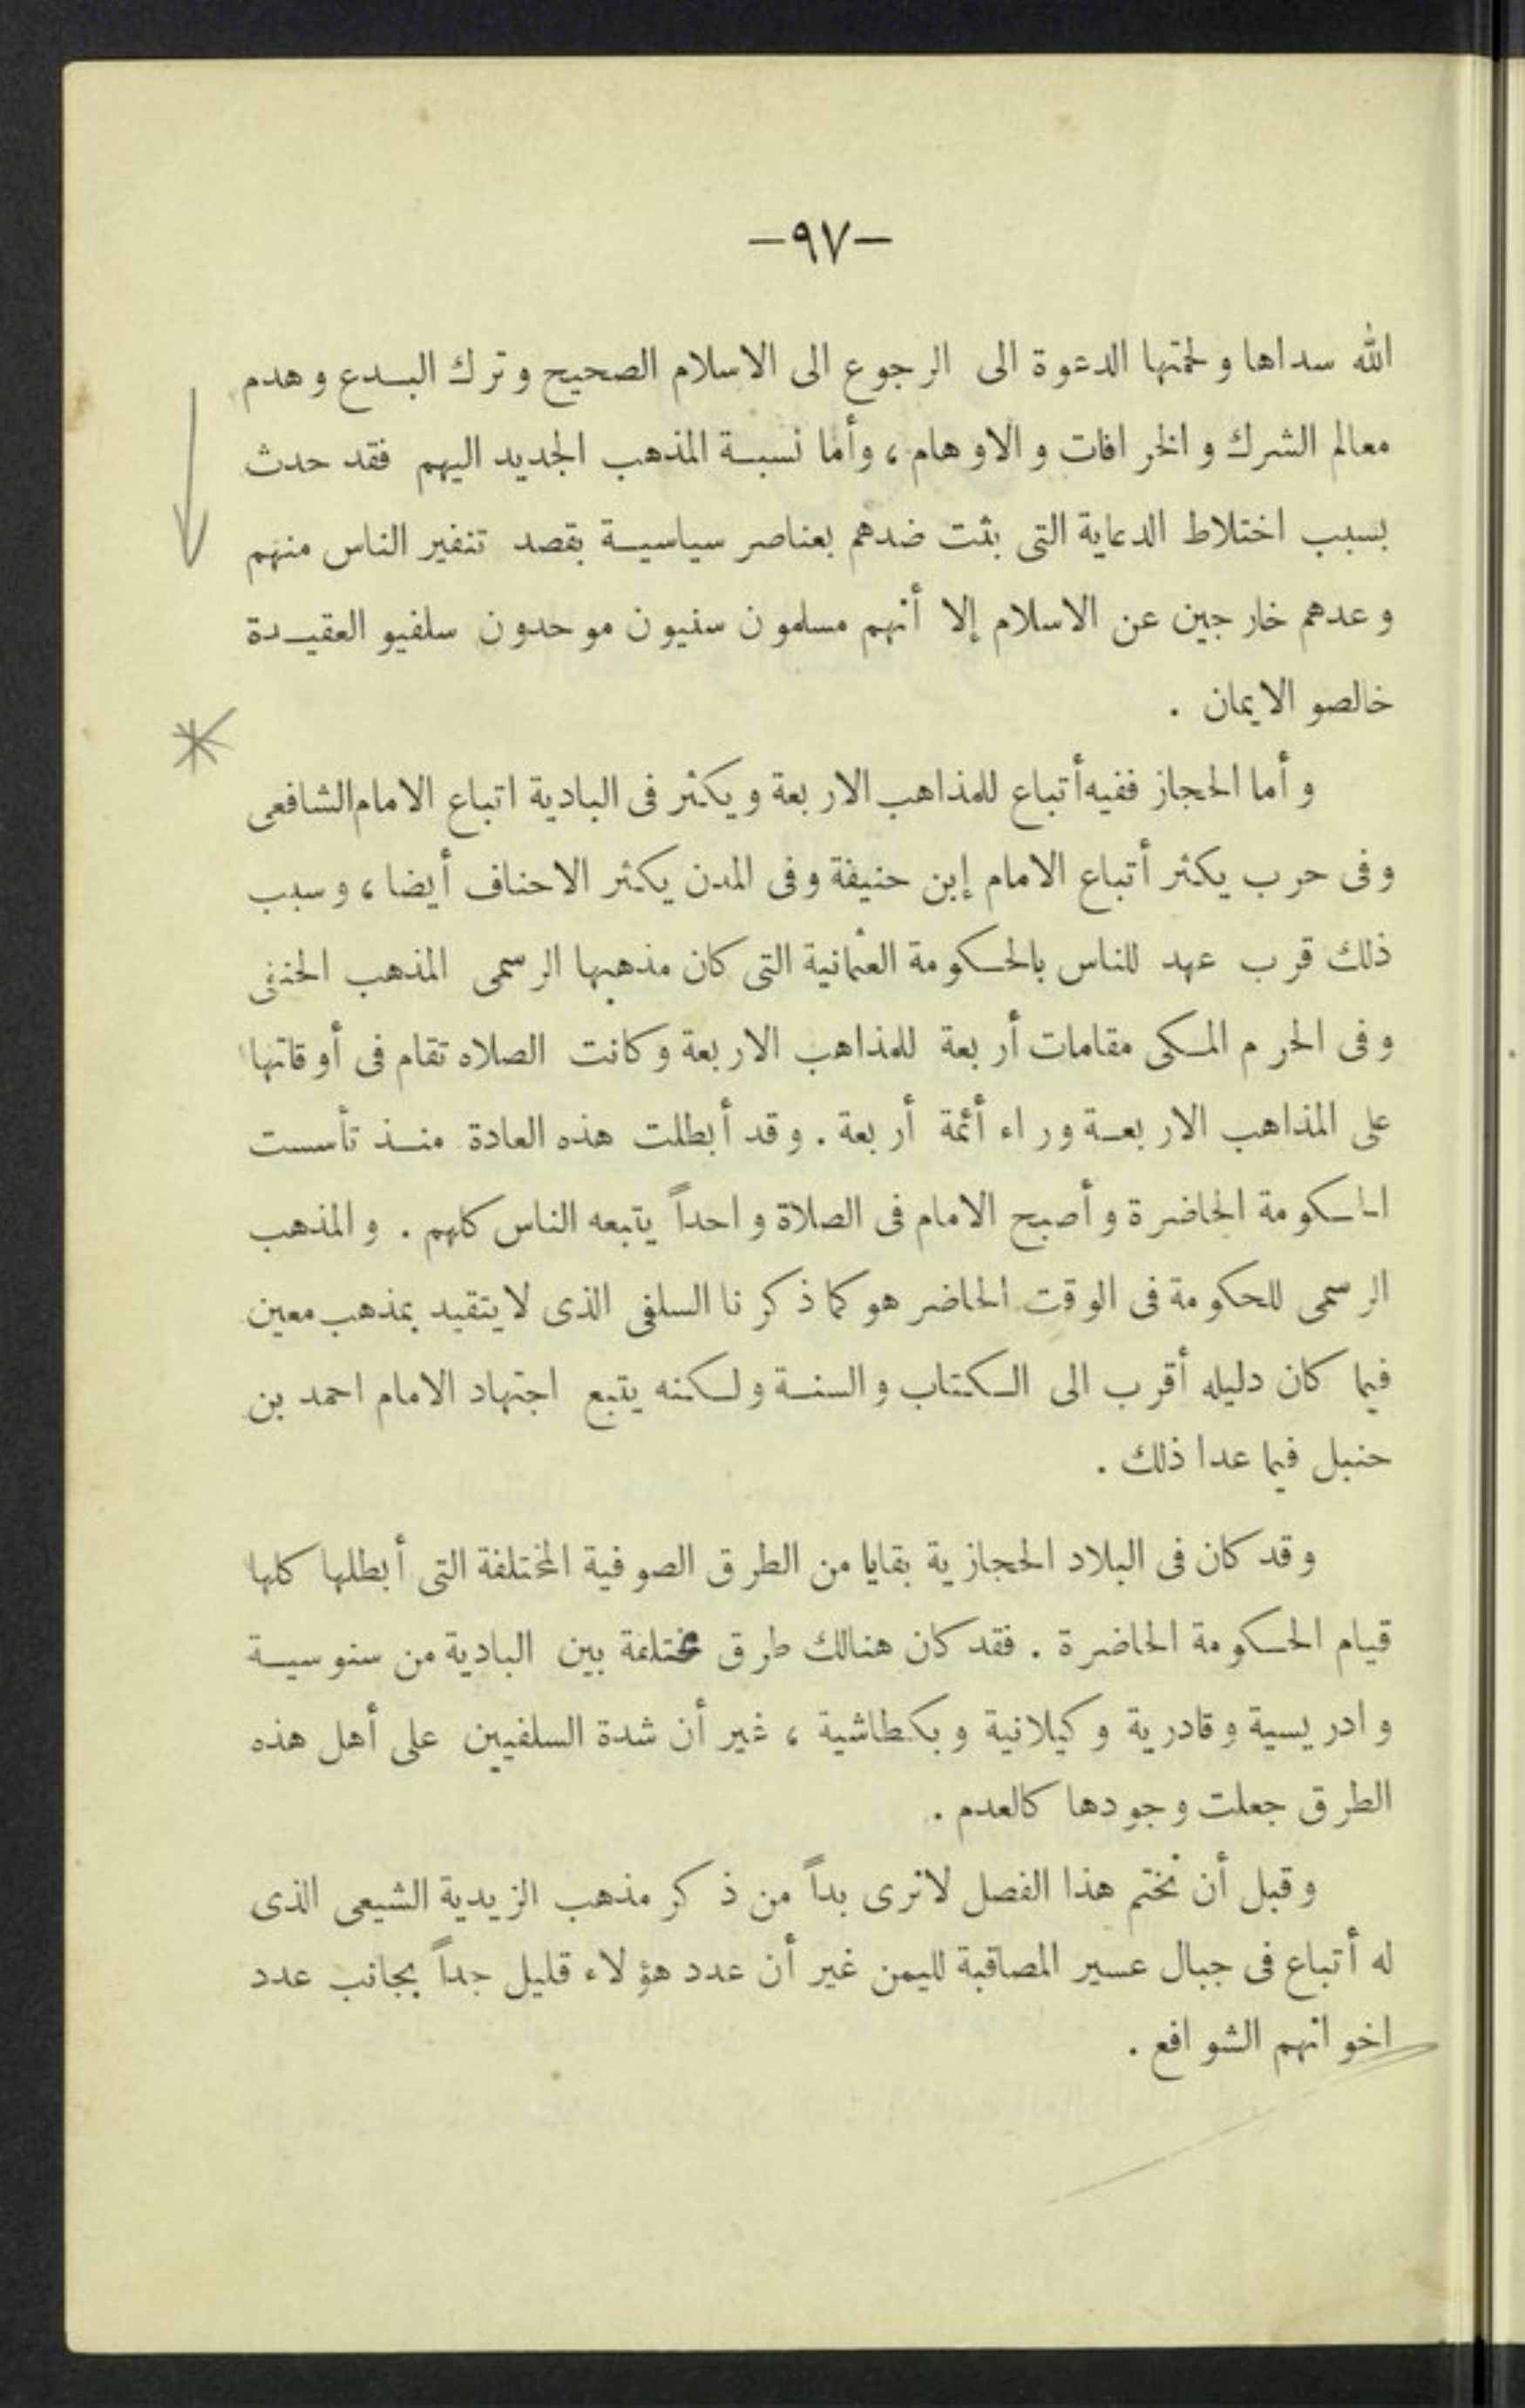 —٩٧—
الله سداها ولحمتها الدعوة الى الرجوع الى الاسلام الصحيح وترك البدع وهدم
معالم الشرك والخرافات والاوهام ، وأما نسبة المذهب الجديد اليهم فقد حدث
بسبب اختلاط الدعاية التى بثت ضدهم بعناصر سياسية بقصد تنفير الناس منهم
وعدهم خارجين عن الاسلام إلا أنهم مسلمون سنيون موحدون سلفيو العقيدة
خالصو الايمان .
وأما الحجاز ففيه أتباع للمذاهب الاربعة ويكثر فى البادية اتباع الامام الشافعى
وفى حرب يكثر أتباع الامام إبن حنيفة وفى المدن يكثر الاحناف أيضا ، وسبب
ذلك قرب عهد للناس بالحكومة العثمانية التى كان مذهبها الرسمى المذهب الحنفى
وفى الحرم المكى مقامات أربعة للمذاهب الاربعة وكانت الصلاه تقام فى أوقاتها
على المذاهب الاربعة وراء أئمة أربعة . وقد أبطلت هذه العادة منذ تأسست
الحكومة الحاضرة وأصبح الامام فى الصلاة واحداً يتبعه الناس كلهم . والمذهب
الرسمى للحكومة فى الوقت الحاضر هو كما ذكرنا السلفى الذى لا يتقيد بمذهب معين
فيما كان دليله أقرب الى الكتاب والسنة ولكنه يتبع اجتهاد الامام احمد بن
حنبل فيما عدا ذلك .
وقد كان فى البلاد الحجازية بقايا من الطرق الصوفية المختلفة التى أبطلها كلها
قيام الحكومة الحاضرة . فقد كان هنالك طرق مختلفة بين البادية من سنوسية
وادريسية وقادرية وكيلانية وبكطاشية ، غير أن شدة السلفيين على أهل هذه
الطرق جعلت وجودها كالعدم .
وقبل أن نختم هذا الفصل لانرى بداً من ذكر مذهب الزيدية الشيعى الذى
له أتباع فى جبال عسير المصاقبة لليمن غير أن عدد هؤلاء قليل جداً بجانب عدد
اخوانهم الشوافع .